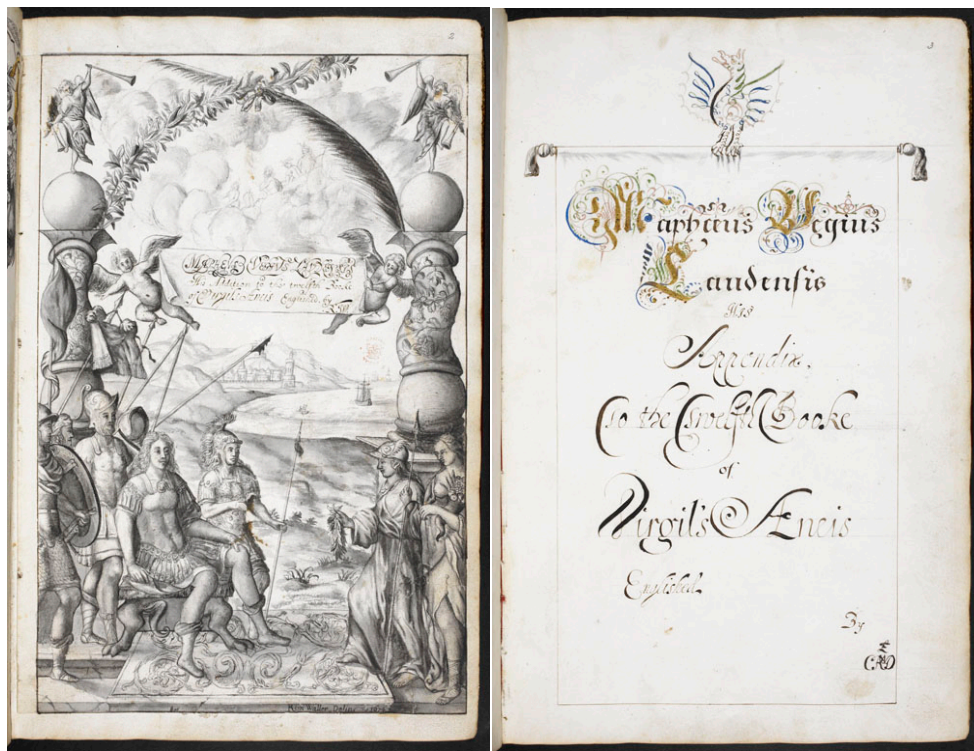 2
MAPHEVS VEGIVS LAVDENSIS
His Addition to the twelfth Booke
of Virgil's Æneis Englished by
3
Mapheus Vegius
Laudensis
His
Appendix,
To the Twelfth Booke
of
Virgil's Æneis
Englished.
By